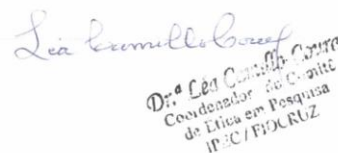 Léa Camillo Coura
Dr.ª Léa Camillo Coura
Coordenador do Comitê
de Ética em Pesquisa
IPEC / FIOCRUZ